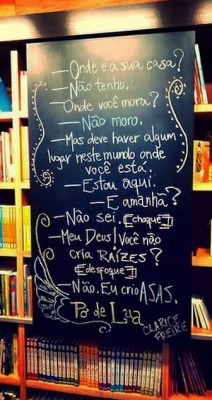 —Onde é a sua casa?
—Não tenho.
—Onde você mora?
—Não moro.
—Mas deve haver algum
lugar neste mundo onde
você está.
—Estou aqui.
—E amanhã?
—Não sei. [choque]
—Meu Deus! Você não
cria RAÍZES?
[desfoque]
—Não. Eu crio ASAS.
Pó de Lua
CLARICE
FREIRE